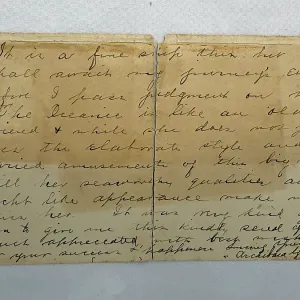 It is a fine ship this but
shall await my journey's
before I pass judgment on
The Oceanic is like an old
friend & while she does not
the elaborate style and
varied amusements of this big
still her seaworthy qualities and
yacht like appearance make me
her. It was very kind
to give me this kindly send off
much appreciated with best
your success & happiness
Archibald